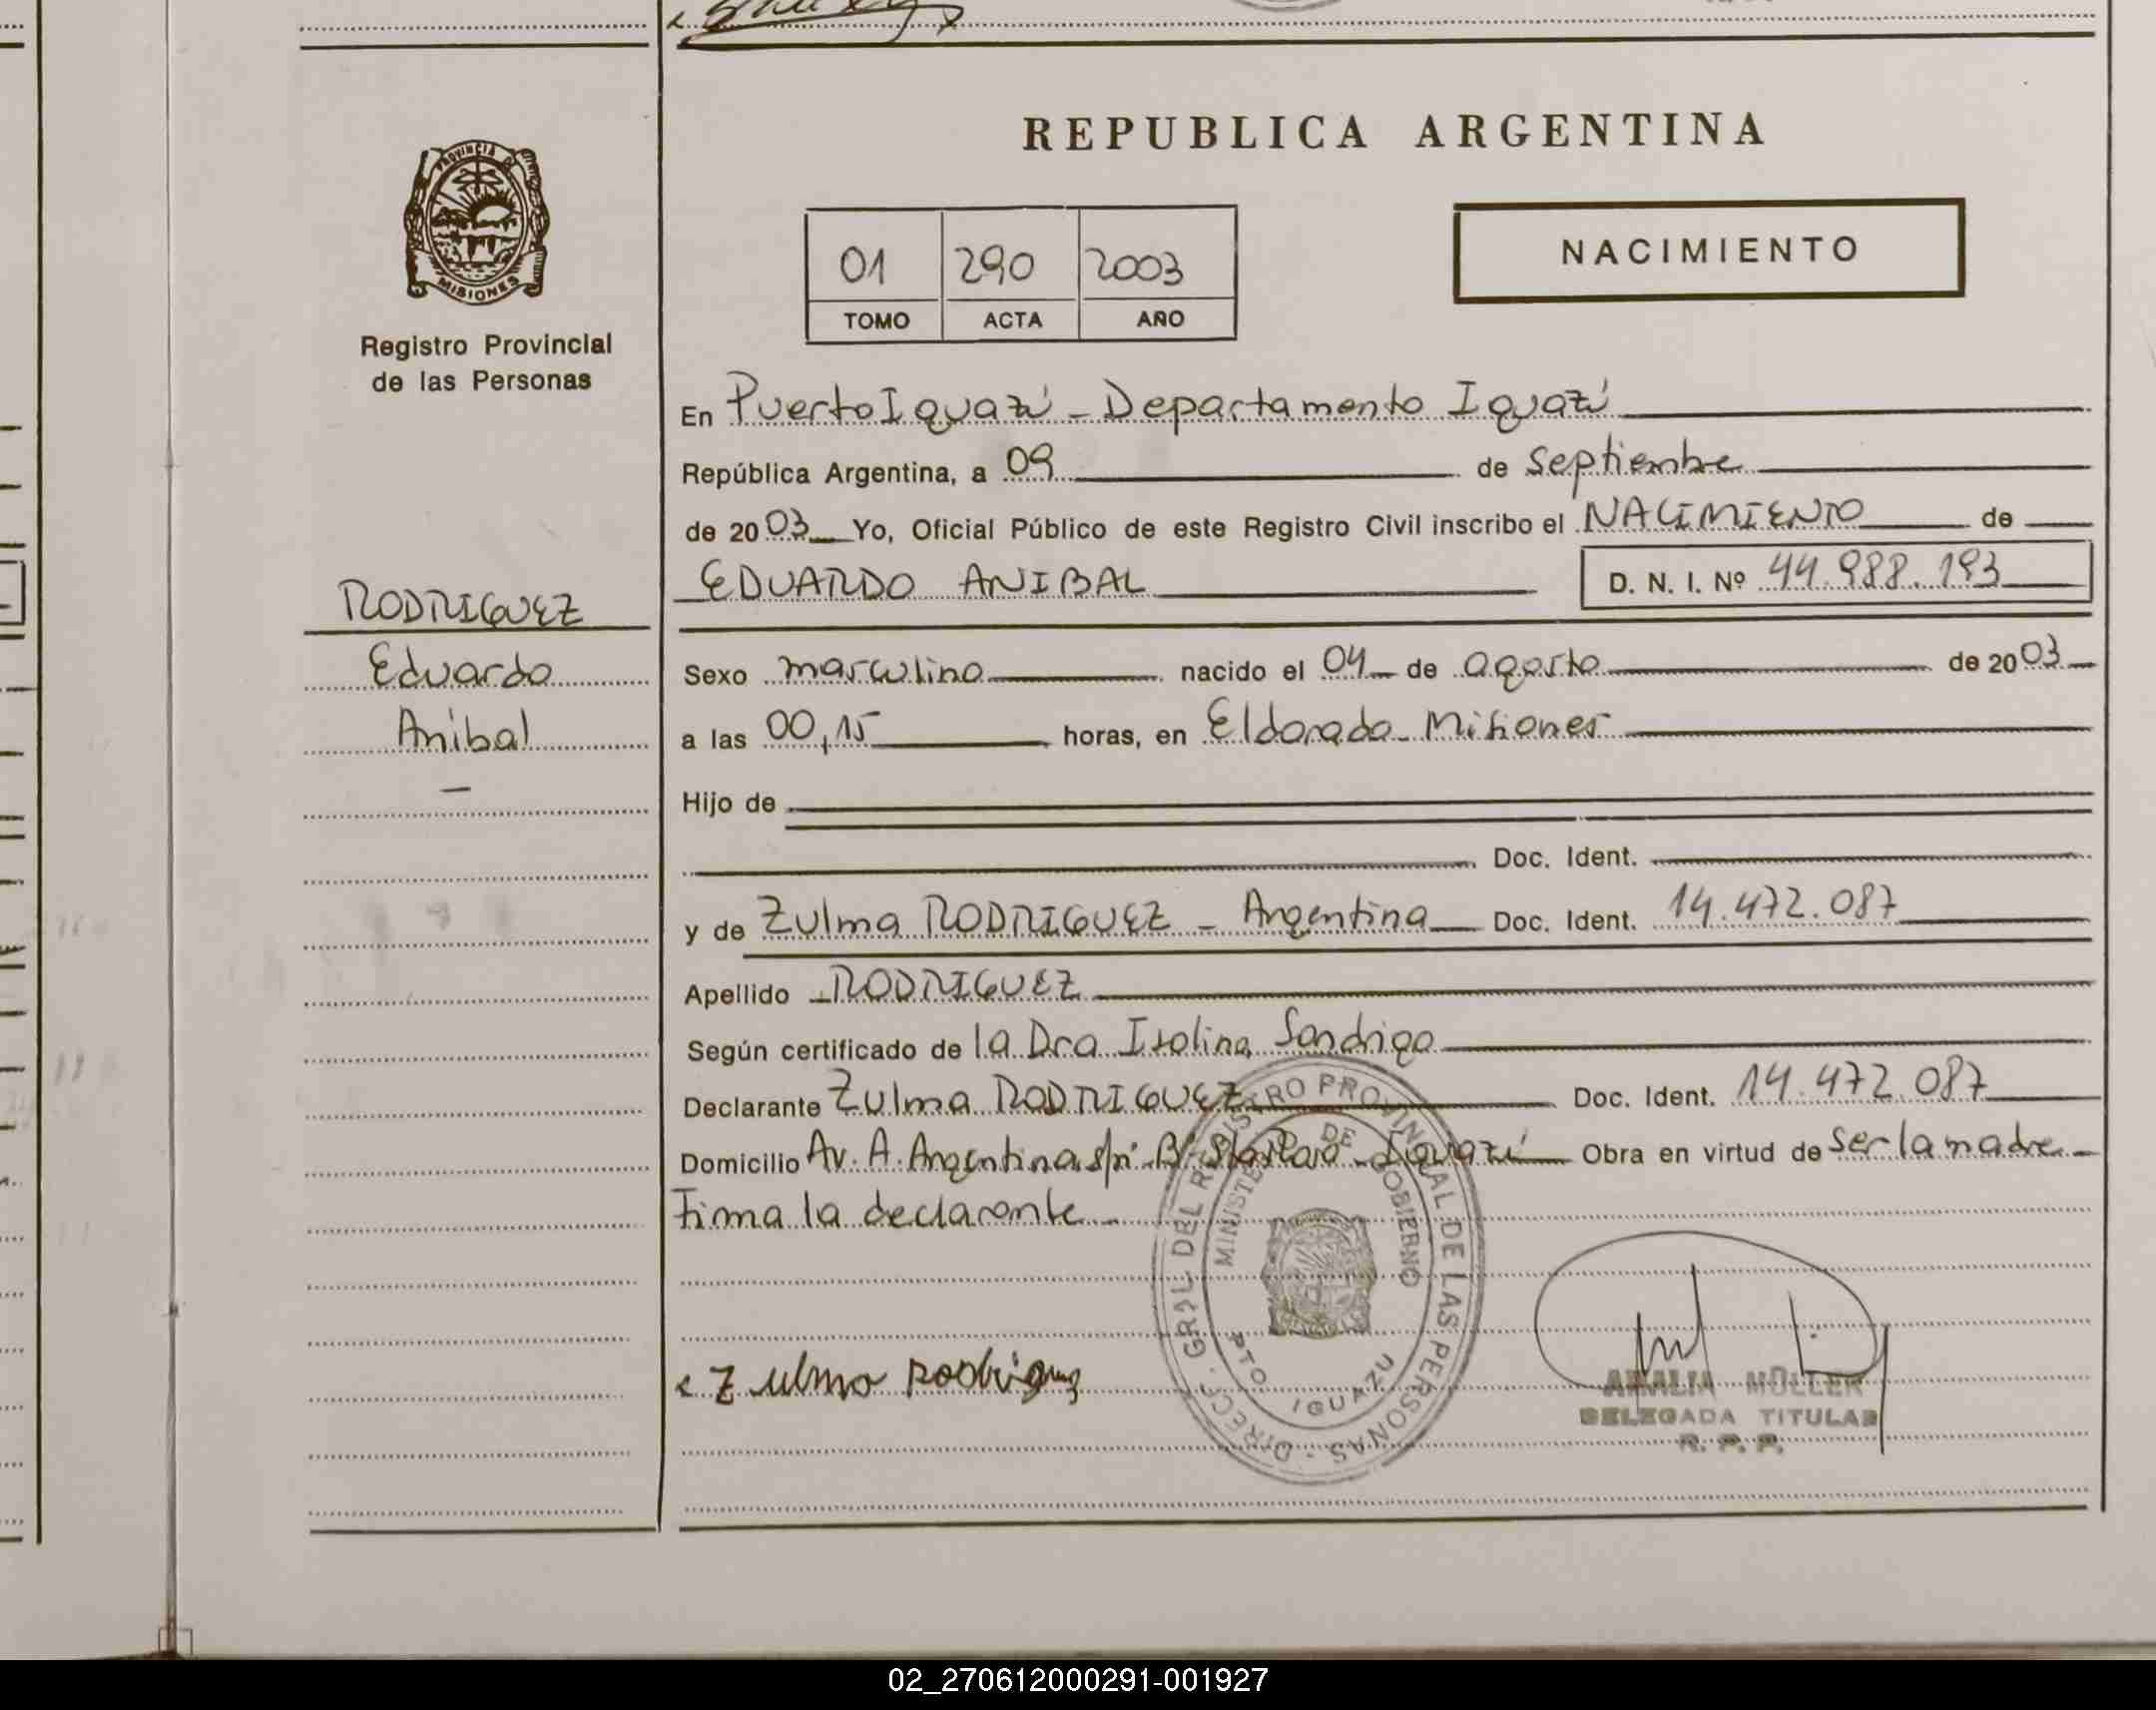 REPUBLICA ARGENTINA
PROVINCIA DE
MISIONES
Registro Provincial
de las Personas
01 290 2003
TOMO ACTA AÑO
NACIMIENTO
En Puerto Iguazú - Departamento Iguazú
República Argentina, a 09 de Septiembre
de 2003 Yo, Oficial Público de este Registro Civil inscribo el NACIMIENTO de
EDUARDO ANIBAL D. N. I. Nº 44.988.193
RODRIGUEZ
Eduardo
Anibal
-
Sexo masculino nacido el 04 de agosto de 2003
a las 00,15 horas, en Eldorado - Misiones
Hijo de
Doc. Ident.
y de Zulma RODRIGUEZ - Argentina Doc. Ident. 14.472.087
Apellido RODRIGUEZ
Según certificado de la Dra Isolina Sandrigo
Declarante Zulma RODRIGUEZ Doc. Ident. 14.472.087
Domicilio Av. A. Argentina Iguazú Obra en virtud de ser la madre
Firma la declarante
DIRECC. GRAL DEL REGISTRO PROVINCIAL DE LAS PERSONAS
MINISTERIO DE GOBIERNO
PTO. IGUAZU
Zulma Rodriguez
AMALIA MÜLLER
DELEGADA TITULAR
R. P. P.
02_270612000291-001927